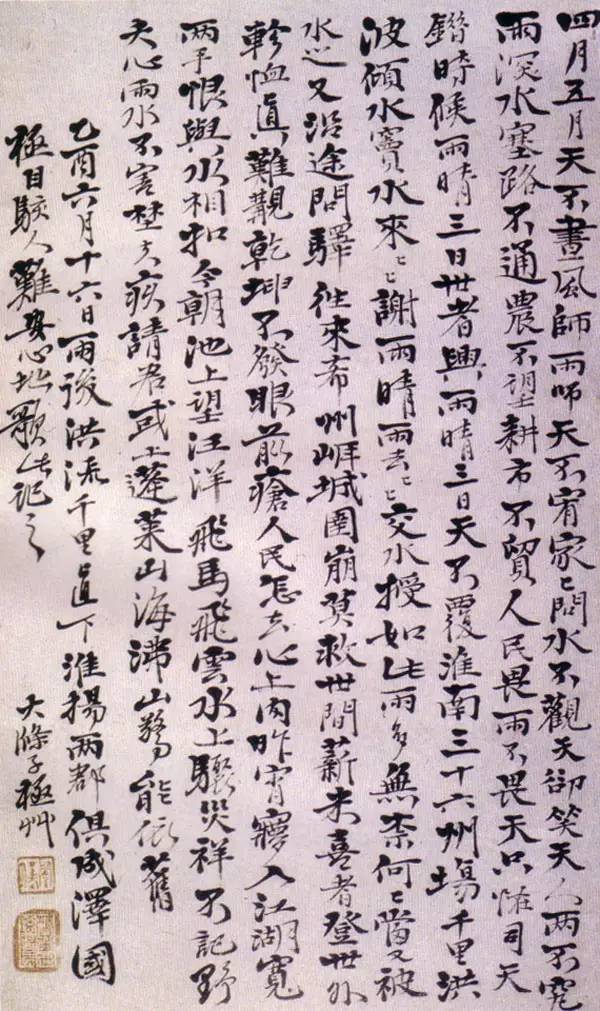 四月五月天不晝風師雨師天不宥家ミ問水不觀天卻笑天人兩不究
雨深水塞路不通農不望耕市不貿人民畏雨不畏天只恠司天
鐕時候雨晴三日世者興雨晴三日天不覆淮南三十六州塲千里洪
波傾水竇水來ミ謝雨晴雨去ミ交水授如此雨多無柰何ミ當又被
水之又沿途問驛往來希州崕城圍崩莫救世間薪未喜者登世外
軫恤真難覯乾坤不發眼前瘡人民怎去心上肉昨宵寢入江湖寬
兩手恨與水相和今朝池上望汪洋飛馬飛雲水上驅災祥不記野
夫心雨水不害埜夫疾請君或上蓬萊山海沸山努能依舊
乙酉六月十六日雨後洪流千里直下淮揚兩郡俱成澤國
極目駭人難安心地歌此記之
大滌子極艸